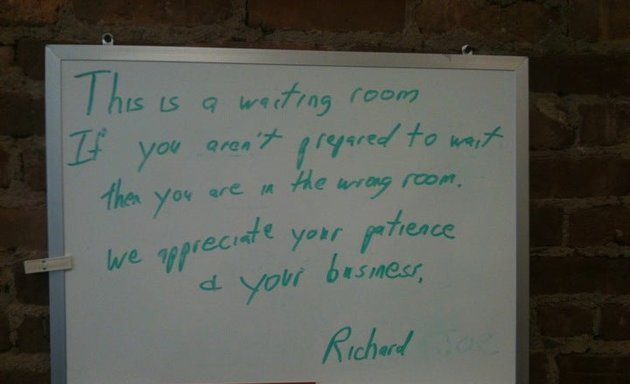 This is a waiting room
If you aren't prepared to wait
then you are in the wrong room.
We appreciate your patience
& your business.
Richard